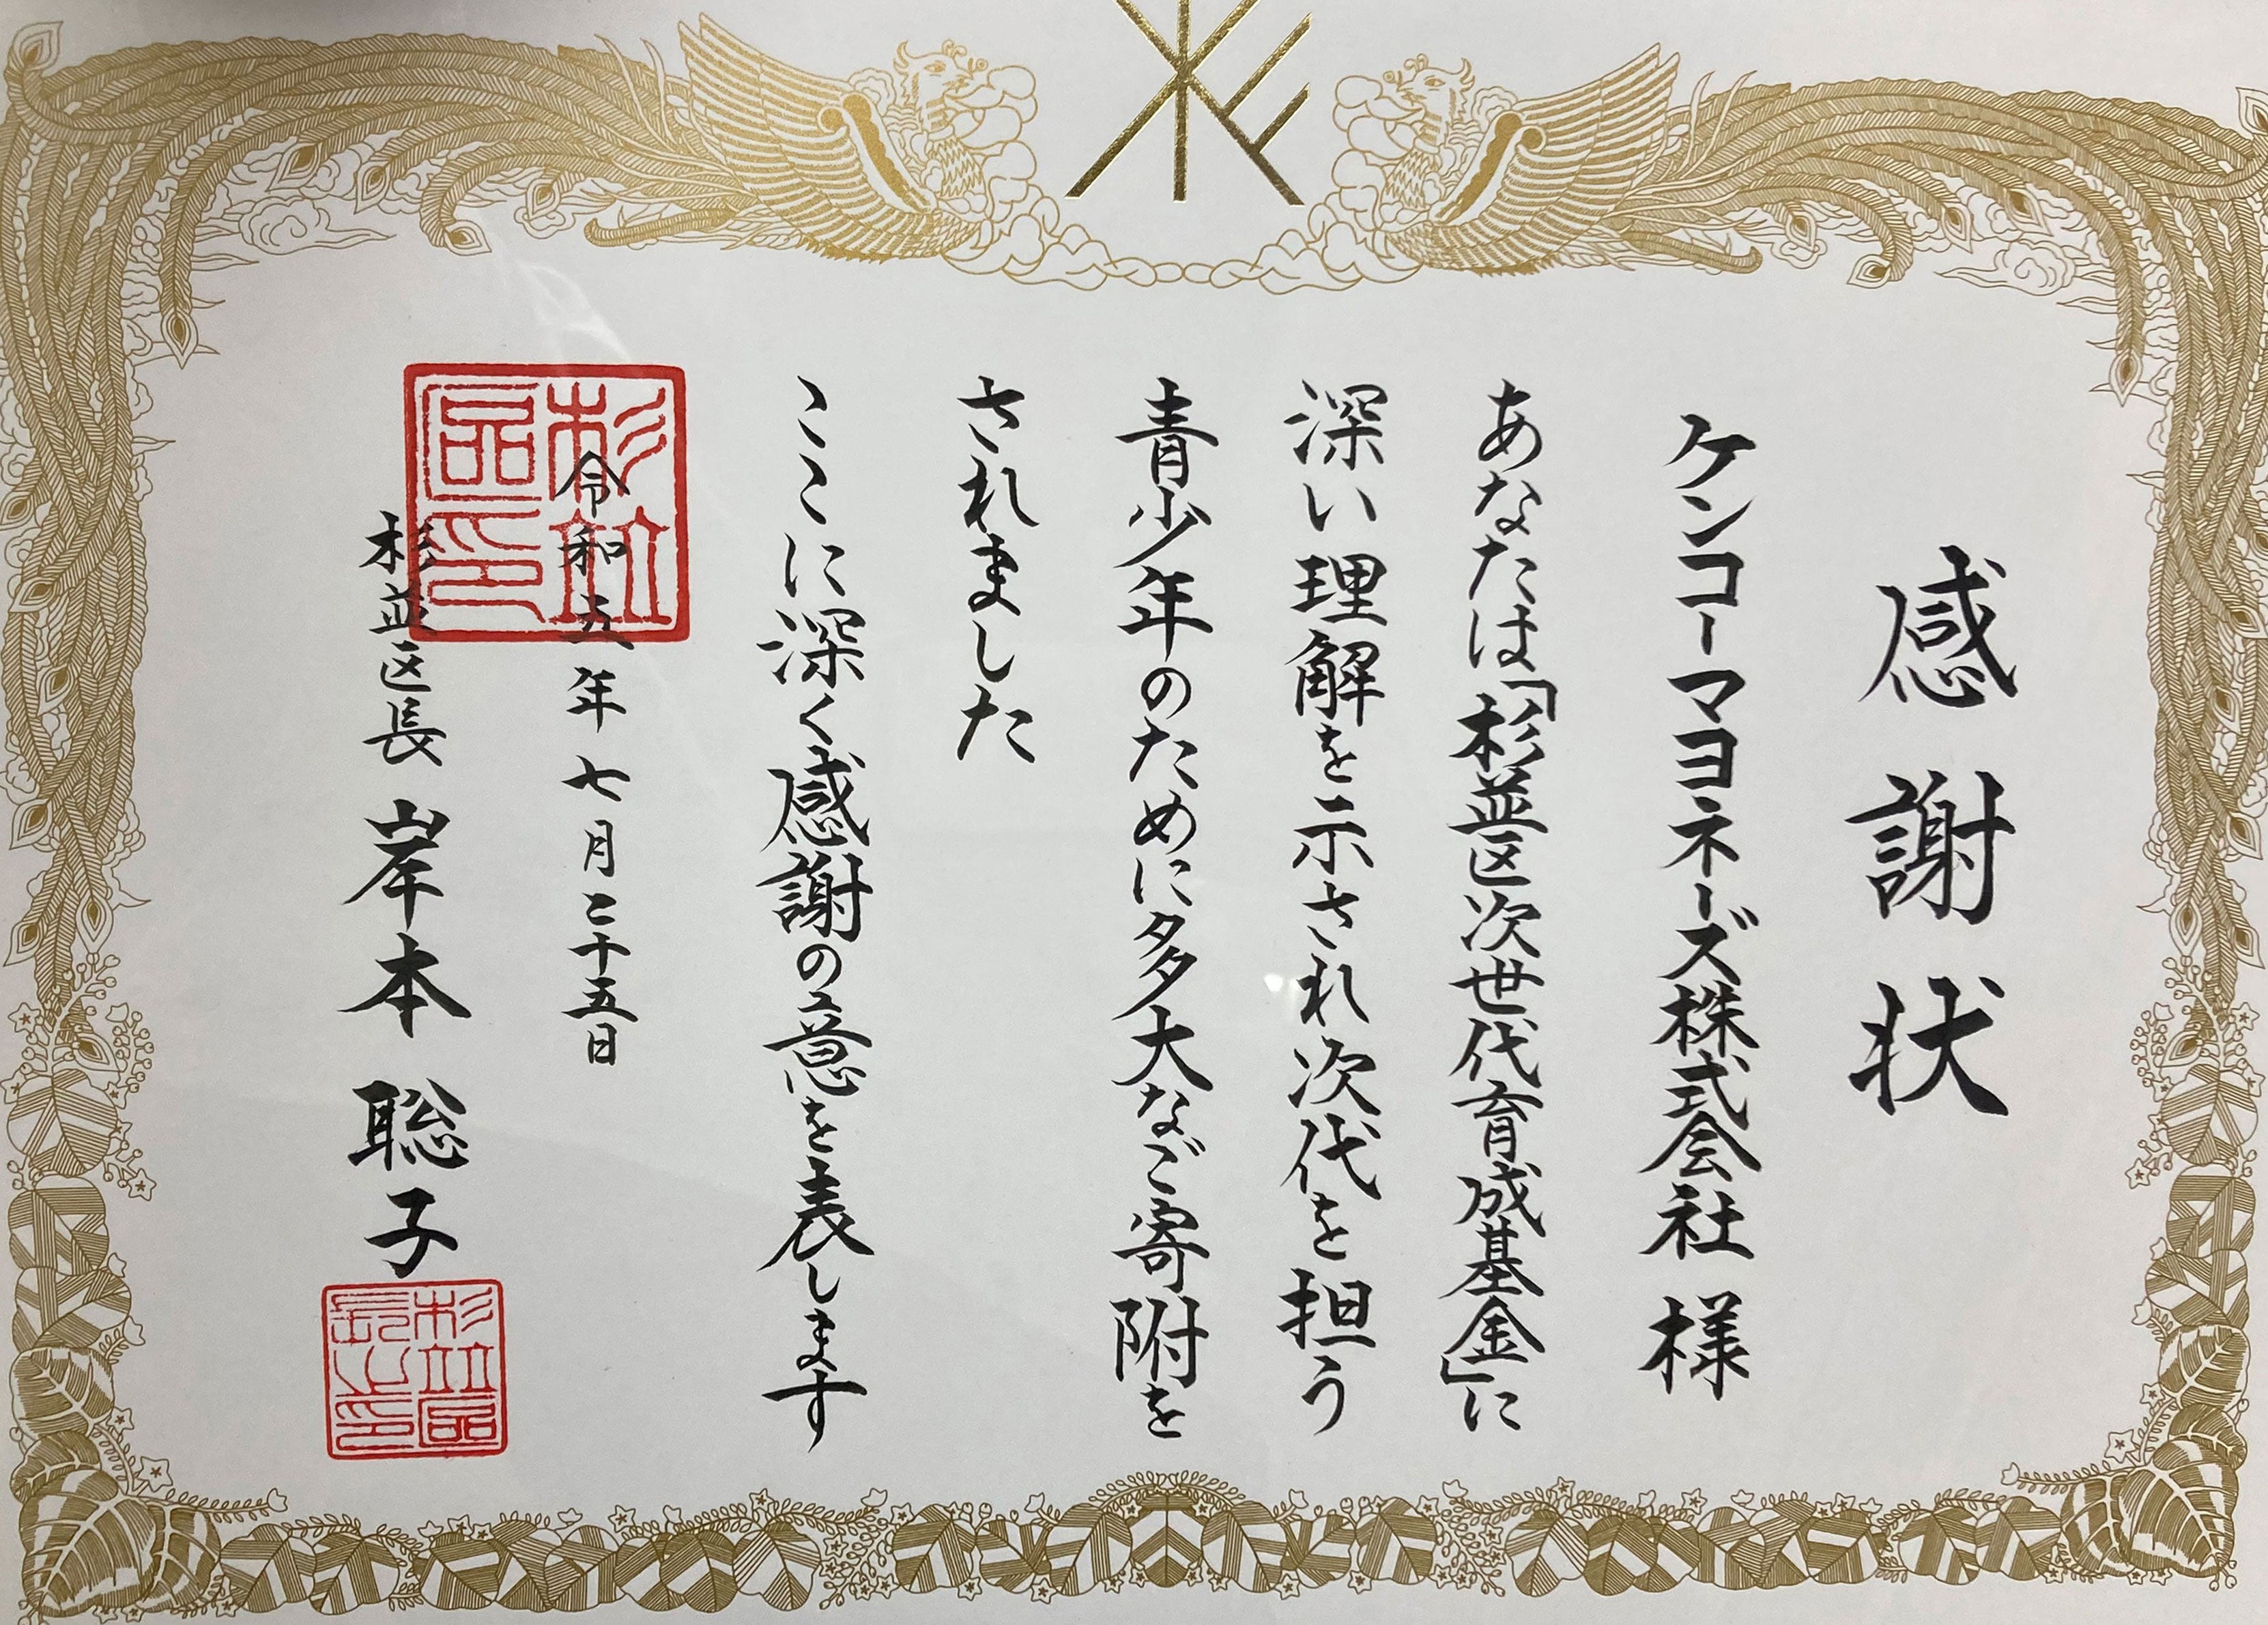 感謝状
ケンコーマヨネーズ株式会社 様
あなたは「杉並区次世代育成基金」に
深い理解を示され次代を担う
青少年のために多大なご寄附を
されました
ここに深く感謝の意を表します
令和五年七月二十五日
杉並区長 岸本聡子
杉並
區印
杉並區
長之印